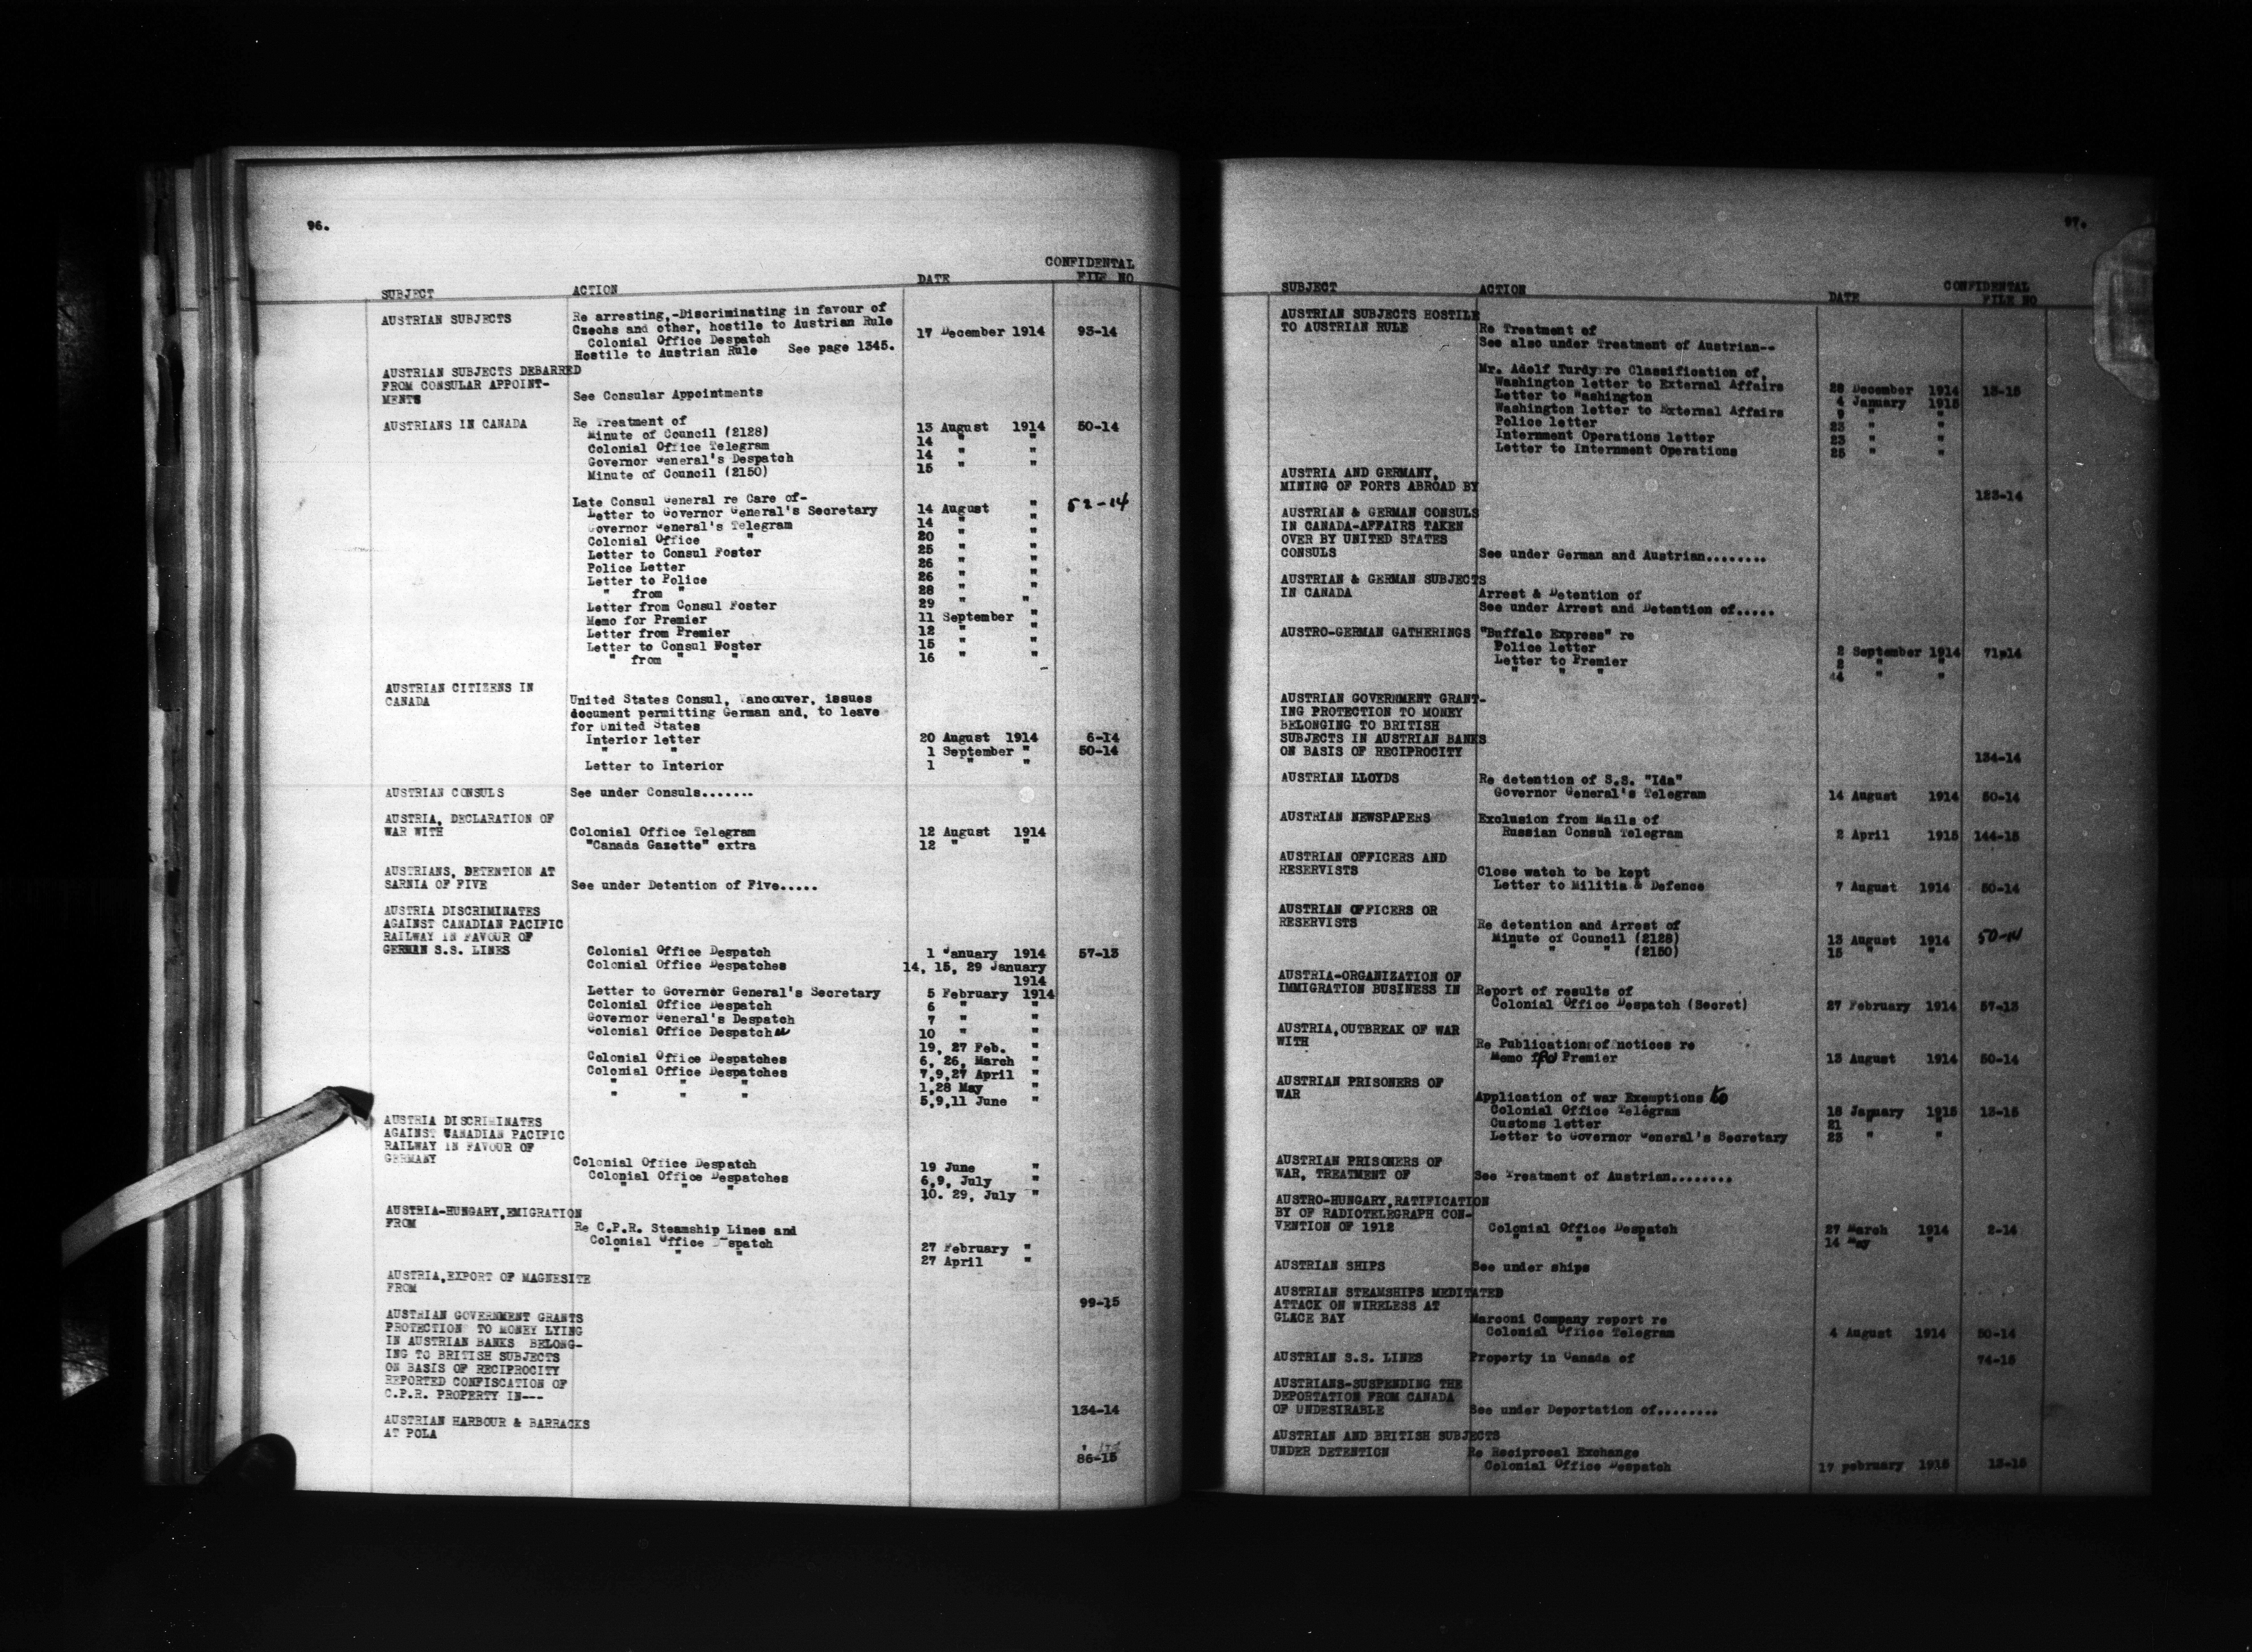 96.
CONFIDENTAL
SUBJECT ACTION DATE FILE NO
AUSTRIAN SUBJECTS Re arresting,-Discriminating in favour of
Czechs and other, hostile to Austrian Rule
Colonial Office Despatch 17 December 1914 93-14
Hostile to Austrian Rule See page 1345.
AUSTRIAN SUBJECTS DEBARRED
FROM CONSULAR APPOINT-
MENTS See Consular Appointments
AUSTRIANS IN CANADA Re Treatment of
Minute of Council (2128) 13 August 1914 50-14
Colonial Office Telegram 14 " "
Governor General's Despatch 14 " "
Minute of Council (2150) 15 " "
Late Consul General re Care of-
Letter to Governor General's Secretary 14 August " 52-14
Governor General's Telegram 14 " "
Colonial Office " 20 " "
Letter to Consul Foster 25 " "
Police Letter 26 " "
Letter to Police 26 " "
" from " 28 " "
Letter from Consul Foster 29 " "
Memo for Premier 11 September "
Letter from Premier 12 " "
Letter to Consul Foster 15 " "
" from " " 16 " "
AUSTRIAN CITIZENS IN
CANADA United States Consul, Vancouver, issues
document permitting German and, to leave
for United States
Interior letter 20 August 1914 6-14
" " 1 September " 50-14
Letter to Interior 1 " "
AUSTRIAN CONSULS See under Consuls.......
AUSTRIA, DECLARATION OF
WAR WITH Colonial Office Telegram 12 August 1914
"Canada Gazette" extra 12 " "
AUSTRIANS, DETENTION AT
SARNIA OF FIVE See under Detention of Five.....
AUSTRIA DISCRIMINATES
AGAINST CANADIAN PACIFIC
RAILWAY IN FAVOUR OF
GERMAN S.S. LINES Colonial Office Despatch 1 January 1914 57-13
Colonial Office Despatches 14, 15, 29 January
1914
Letter to Governor General's Secretary 5 February 1914
Colonial Office Despatch 6 " "
Governor General's Despatch 7 " "
Colonial Office Despatch 10 " "
19, 27 Feb. "
Colonial Office Despatches 6, 26, March "
Colonial Office Despatches 7,9,27 April "
" " " 1,28 May "
" " " 5,9,11 June "
AUSTRIA DISCRIMINATES
AGAINST CANADIAN PACIFIC
RAILWAY IN FAVOUR OF
GERMANY Colonial Office Despatch 19 June "
Colonial Office Despatches 6,9, July "
" " " 10. 29, July "
AUSTRIA-HUNGARY,EMIGRATION
FROM Re C.P.R. Steamship Lines and
Colonial Office Despatch 27 February "
" " " 27 April "
AUSTRIA,EXPORT OF MAGNESITE
FROM
99-15
AUSTRIAN GOVERNMENT GRANTS
PROTECTION TO MONEY LYING
IN AUSTRIAN BANKS BELONG-
ING TO BRITISH SUBJECTS
ON BASIS OF RECIPROCITY
REPORTED CONFISCATION OF
C.P.R. PROPERTY IN---
134-14
AUSTRIAN HARBOUR & BARRACKS
AT POLA
86-15
97.
CONFIDENTAL
SUBJECT ACTION DATE FILE NO
AUSTRIAN SUBJECTS HOSTILE
TO AUSTRIAN RULE Re Treatment of
See also under Treatment of Austrian--
Mr. Adolf Turdy re Classification of,
Washington letter to External Affairs 28 December 1914 13-15
Letter to Washington 4 January 1915
Washington letter to External Affairs 9 " "
Police letter 23 " "
Internment Operations letter 23 " "
Letter to Internment Operations 25 " "
AUSTRIA AND GERMANY,
MINING OF PORTS ABROAD BY
123-14
AUSTRIAN & GERMAN CONSULS
IN CANADA-AFFAIRS TAKEN
OVER BY UNITED STATES
CONSULS See under German and Austrian........
AUSTRIAN & GERMAN SUBJECTS
IN CANADA Arrest & Detention of
See under Arrest and Detention of.....
AUSTRO-GERMAN GATHERINGS "Buffalo Express" re
Police letter 2 September 1914 71-14
Letter to Premier 2 " "
" " " 14 " "
AUSTRIAN GOVERNMENT GRANT-
ING PROTECTION TO MONEY
BELONGING TO BRITISH
SUBJECTS IN AUSTRIAN BANKS
ON BASIS OF RECIPROCITY
134-14
AUSTRIAN LLOYDS Re detention of S.S. "Ida"
Governor General's Telegram 14 August 1914 50-14
AUSTRIAN NEWSPAPERS Exclusion from Mails of
Russian Consul Telegram 2 April 1915 144-15
AUSTRIAN OFFICERS AND
RESERVISTS Close watch to be kept
Letter to Militia & Defence 7 August 1914 50-14
AUSTRIAN OFFICERS OR
RESERVISTS Re detention and Arrest of
Minute of Council (2128) 13 August 1914 50-14
" " " (2150) 15 " "
AUSTRIA-ORGANIZATION OF
IMMIGRATION BUSINESS IN Report of results of
Colonial Office Despatch (Secret) 27 February 1914 57-13
AUSTRIA,OUTBREAK OF WAR
WITH Re Publication of notices re
Memo for Premier 13 August 1914 50-14
AUSTRIAN PRISONERS OF
WAR Application of war Exemptions to
Colonial Office Telegram 18 January 1915 13-15
Customs letter 21 " "
Letter to Governor General's Secretary 23 " "
AUSTRIAN PRISONERS OF
WAR, TREATMENT OF See Treatment of Austrian........
AUSTRO-HUNGARY,RATIFICATION
BY OF RADIOTELEGRAPH CON-
VENTION OF 1912 Colonial Office Despatch 27 March 1914 2-14
" " " 14 May "
AUSTRIAN SHIPS See under ships
AUSTRIAN STEAMSHIPS MEDITATED
ATTACK ON WIRELESS AT
GLACE BAY Marconi Company report re
Colonial Office Telegram 4 August 1914 50-14
AUSTRIAN S.S. LINES Property in Canada of 74-15
AUSTRIANS-SUSPENDING THE
DEPORTATION FROM CANADA
OF UNDESIRABLE See under Deportation of........
AUSTRIAN AND BRITISH SUBJECTS
UNDER DETENTION Re Reciprocal Exchange
Colonial Office Despatch 17 February 1915 13-15